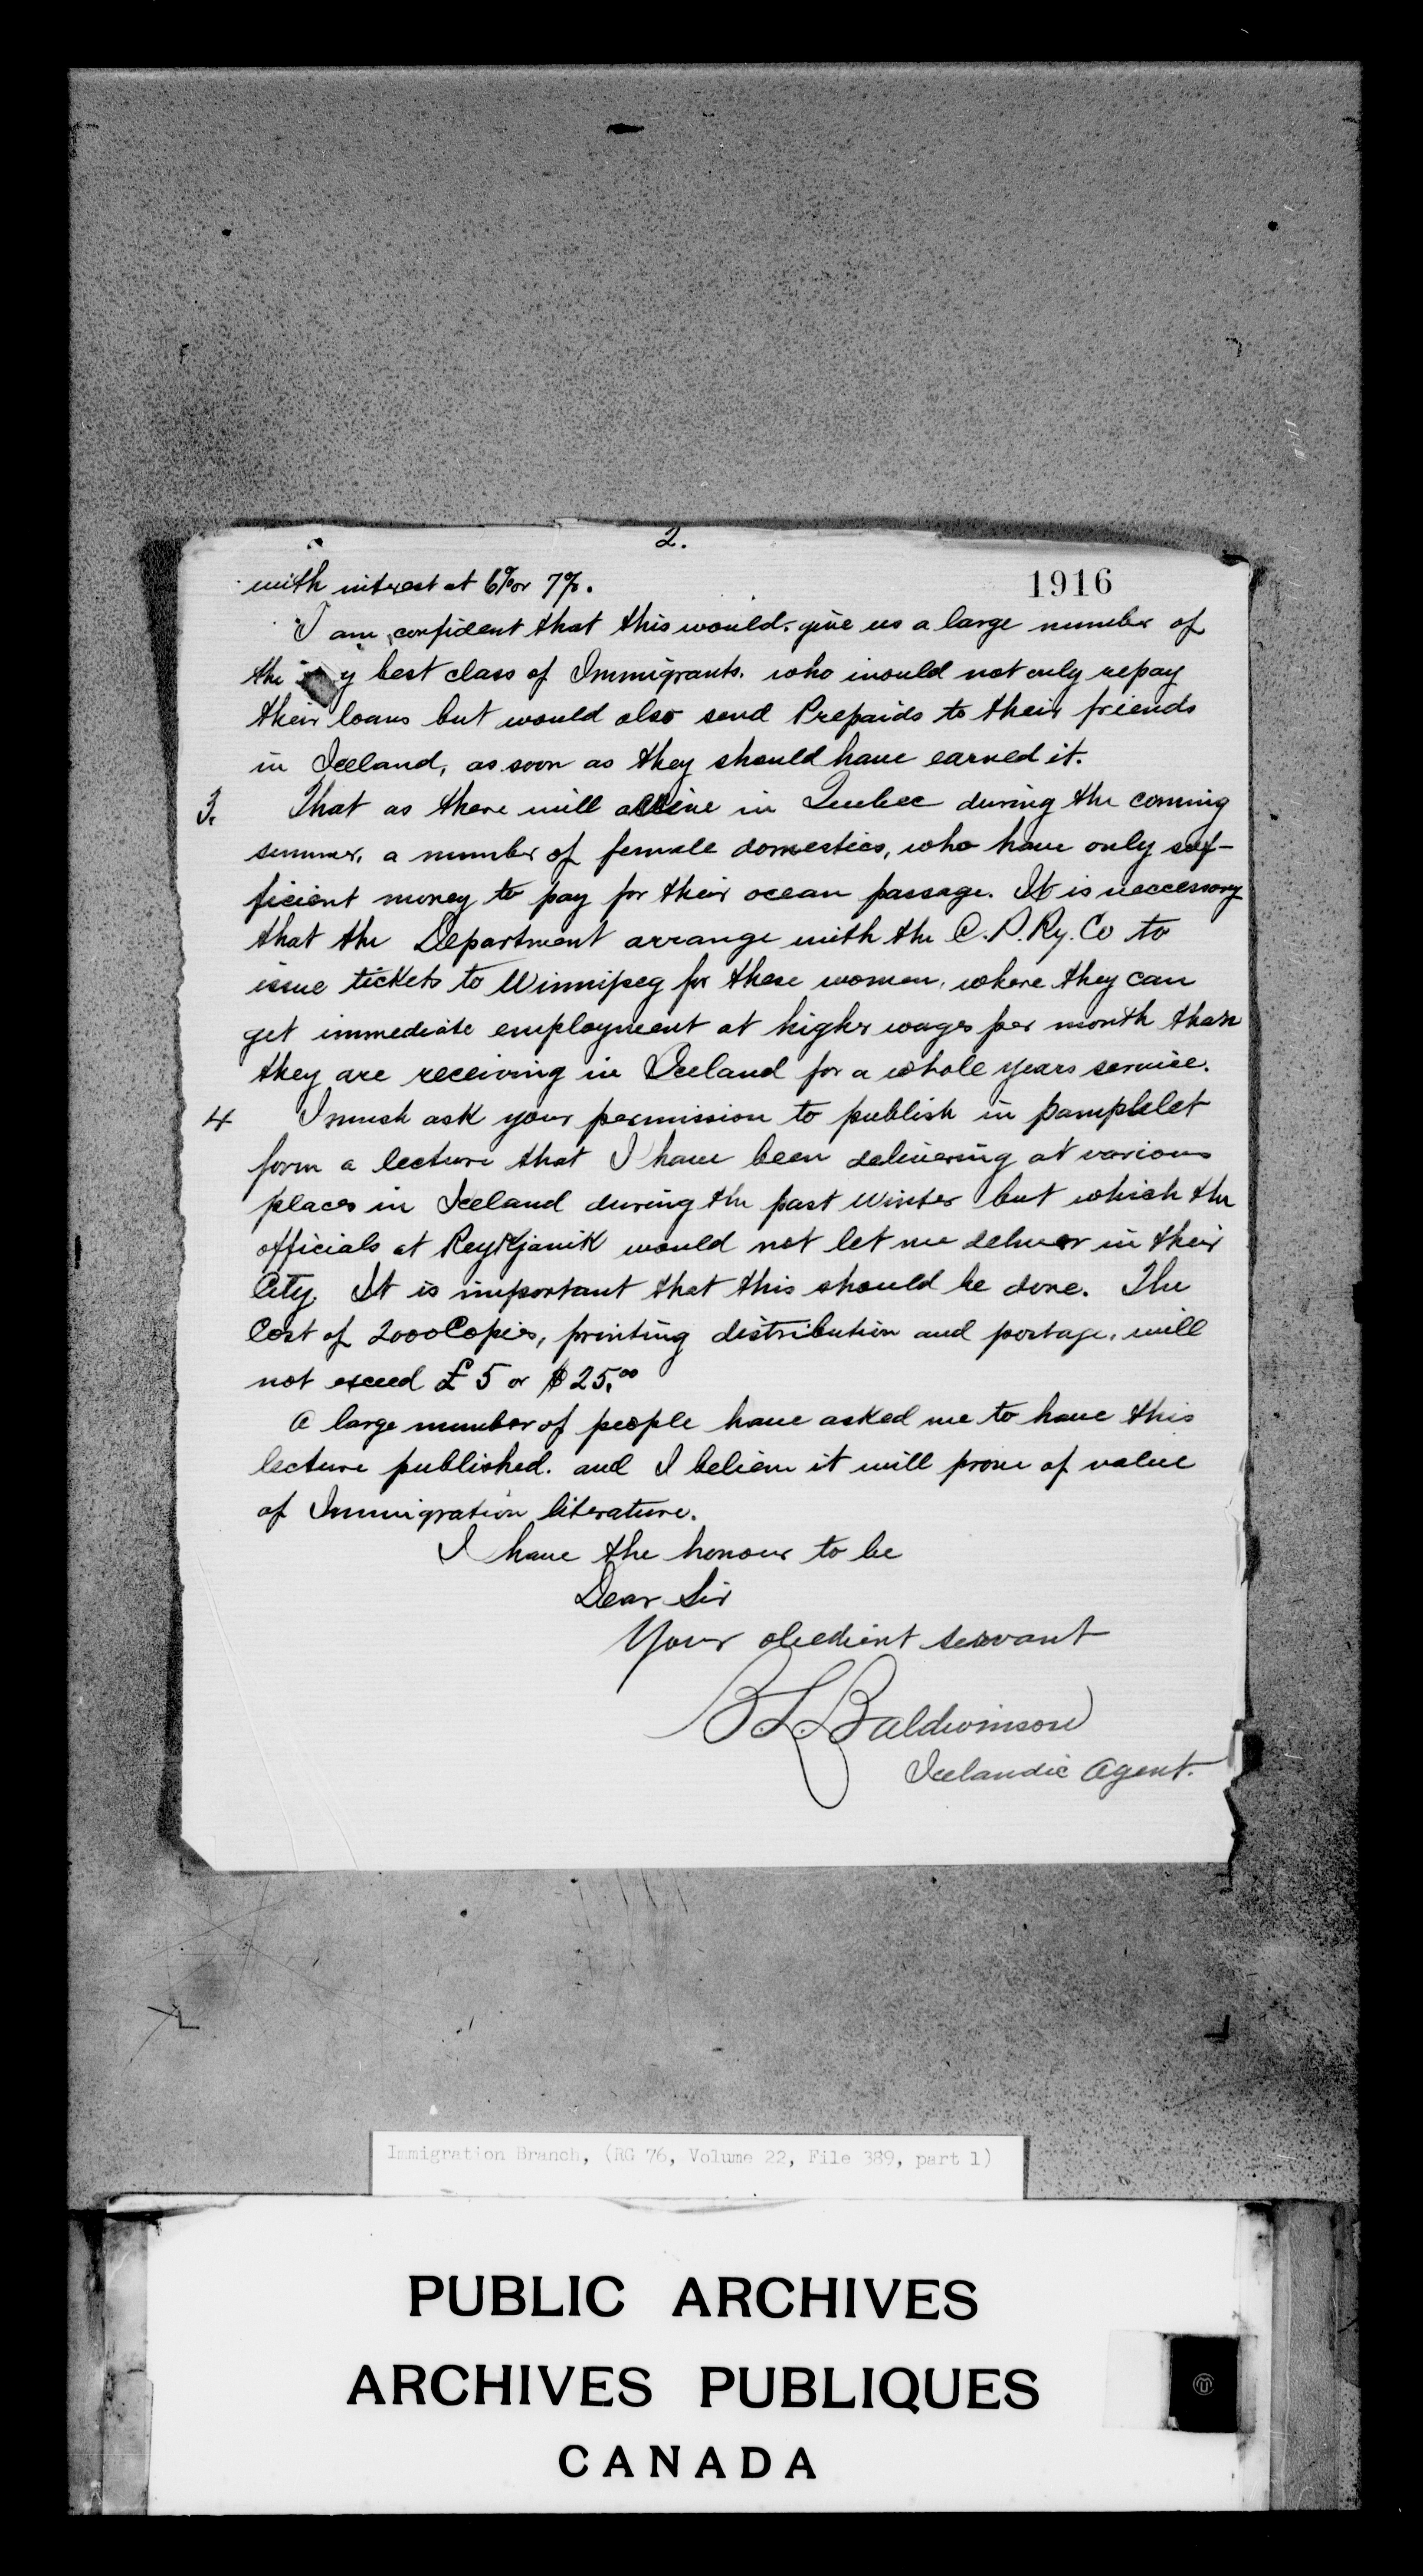 2.
1916
with interest at 6% or 7%.
I am confident that this would give us a large number of
the y best class of Immigrants. who would not only repay
their loans but would also send Prepaids to their friends
in Iceland, as soon as they should have earned it.
3. That as there will arrive in Quebec during the coming
summer, a number of female domestics, who have only suf-
ficient money to pay for their ocean passage. It is neccessary
that the Department arrange with the C. P. Ry. Co to
issue tickets to Winnipeg for these women, where they can
get immediate employment at higher wages per month than
they are receiving in Iceland for a whole years service.
4 I must ask your permission to publish in pamphlet
form a lecture that I have been delivering at various
places in Iceland during the past Winter but which the
officials at Reykjavik would not let me deliver in their
City. It is important that this should be done. The
Cost of 2000 Copies, printing distribution and postage, will
not exceed £ 5 or $ 25.00
A large number of people have asked me to have this
lecture published. and I believe it will prove of value
of Immigration literature.
I have the honour to be
Dear Sir
Your obedient servant
B L Baldwinson
Icelandic Agent.
Immigration Branch, (RG 76, Volume 22, File 389, part 1)
PUBLIC ARCHIVES
ARCHIVES PUBLIQUES
CANADA